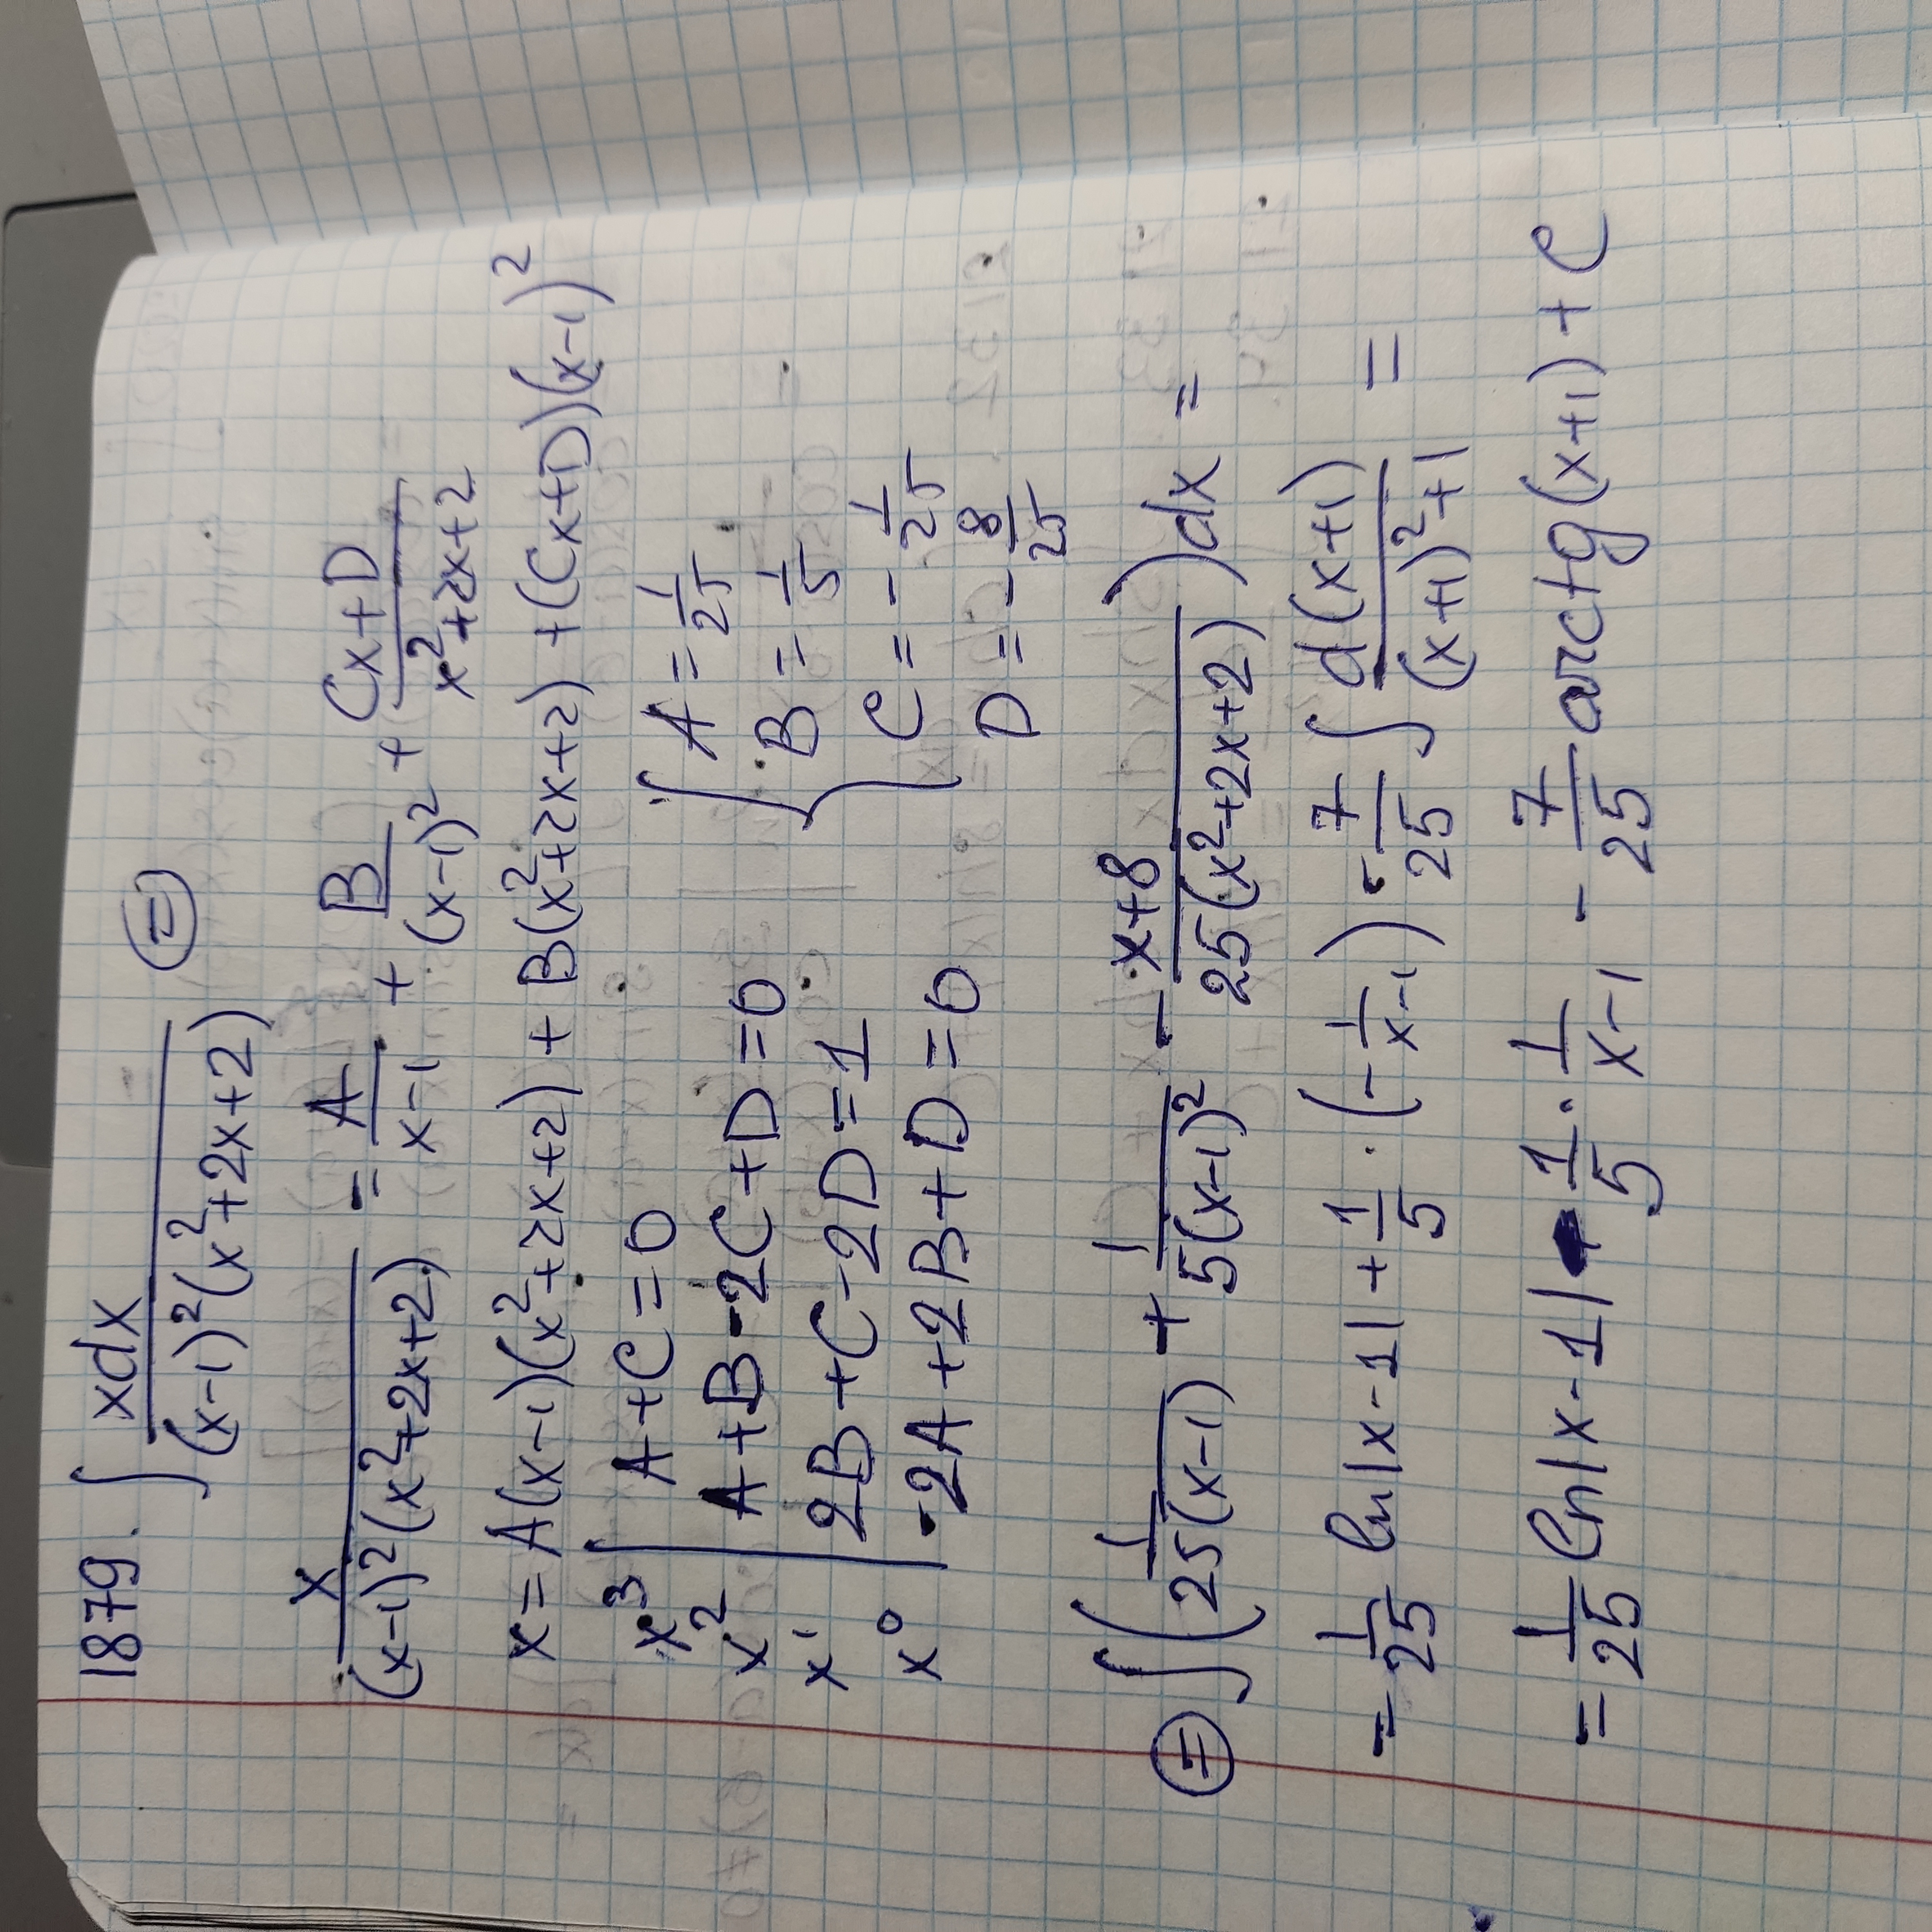 1879. ∫ xdx / ((x-1)²(x²+2x+2)) ⊜
x / ((x-1)²(x²+2x+2)) = A/(x-1) + B/(x-1)² + (Cx+D)/(x²+2x+2)
x = A(x-1)(x²+2x+2) + B(x²+2x+2) + (Cx+D)(x-1)²
x³ | A+C=0
x² | A+B-2C+D=0
x¹ | 2B+C-2D=1
x⁰ | -2A+2B+D=0
{ A = 1/25
B = 1/5
C = - 1/25
D = - 8/25
⊜ ∫ ( 1/(25(x-1)) + 1/(5(x-1)²) - (x+8)/(25(x²+2x+2)) ) dx =
= 1/25 ln|x-1| + 1/5 · (- 1/(x-1)) - 7/25 ∫ d(x+1)/((x+1)²+1) =
= 1/25 ln|x-1| - 1/5 · 1/(x-1) - 7/25 arctg(x+1) + C